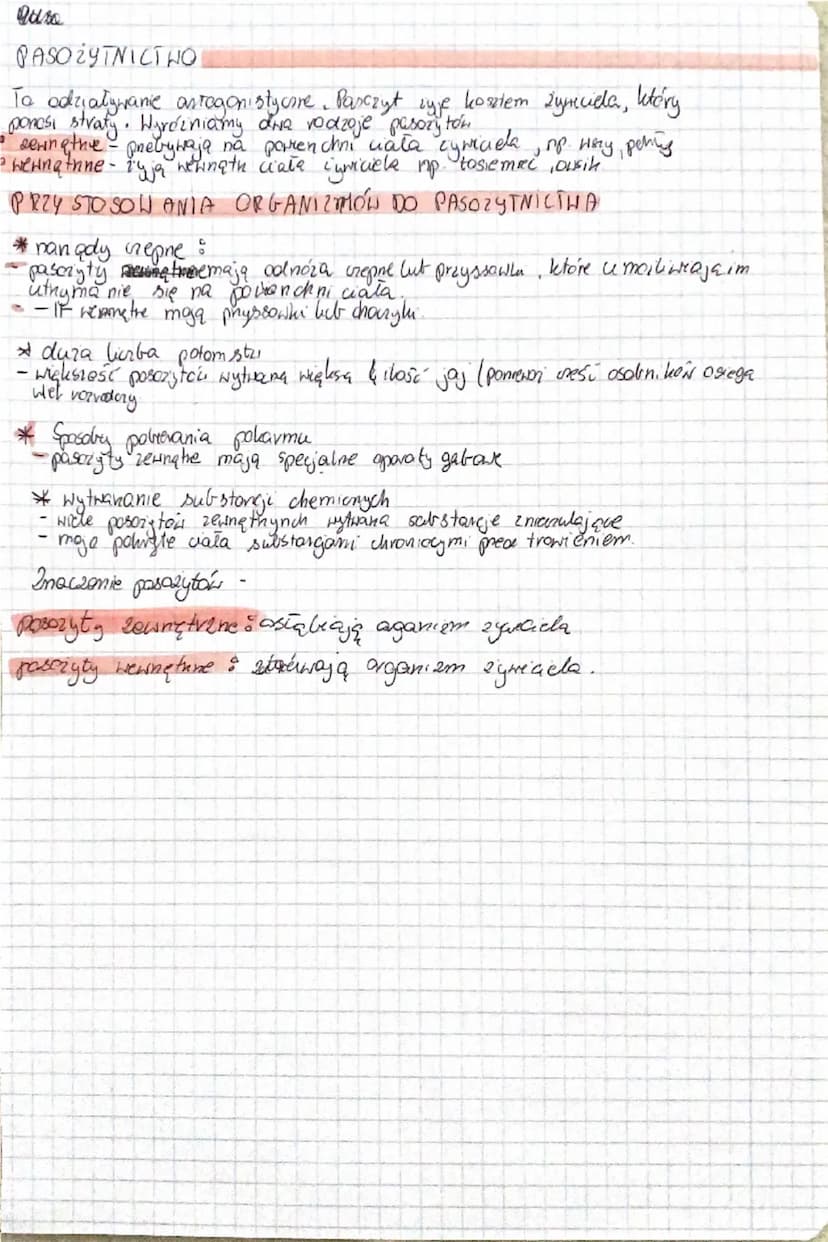 PASOŻYTNICTWO
To oddziaływanie antagonistyczne. Pasożyt żyje kosztem żywiciela, który
ponosi straty. Wyróżniamy dwa rodzaje pasożytów
• zewnętrzne - przebywają na powierzchni ciała żywiciela, np. wszy, pchły
• wewnętrzne - żyją wewnątrz ciała żywiciela np. tasiemiec, owsik
PRZYSTOSOWANIA ORGANIZMÓW DO PASOŻYTNICTWA
* narządy czepne :
- pasożyty mają odnóża czepne lub przyssawki, które umożliwiają im
utrzymanie się na powierzchni ciała.
- -||- wewnętrzne mają przyssawki lub haczyki.
* duża liczba potomstw
- większość pasożytów wytwarza większą ilość jaj (ponieważ część osobników osiega
wiek rozrodczy
* Sposoby pobierania pokarmu
- pasożyty zewnętrzne mają specjalne aparaty gębowe
* wytwarzanie substancji chemicznych
- wiele pasożytów zewnętrznych wytwarza substancje znieczulające
- mają pokryte ciała substancjami chroniącymi przed trawieniem.
Znaczenie pasożytów -
pasożyty zewnętrzne : osłabiają organizm żywiciela
pasożyty wewnętrzne : organizm żywiciela.